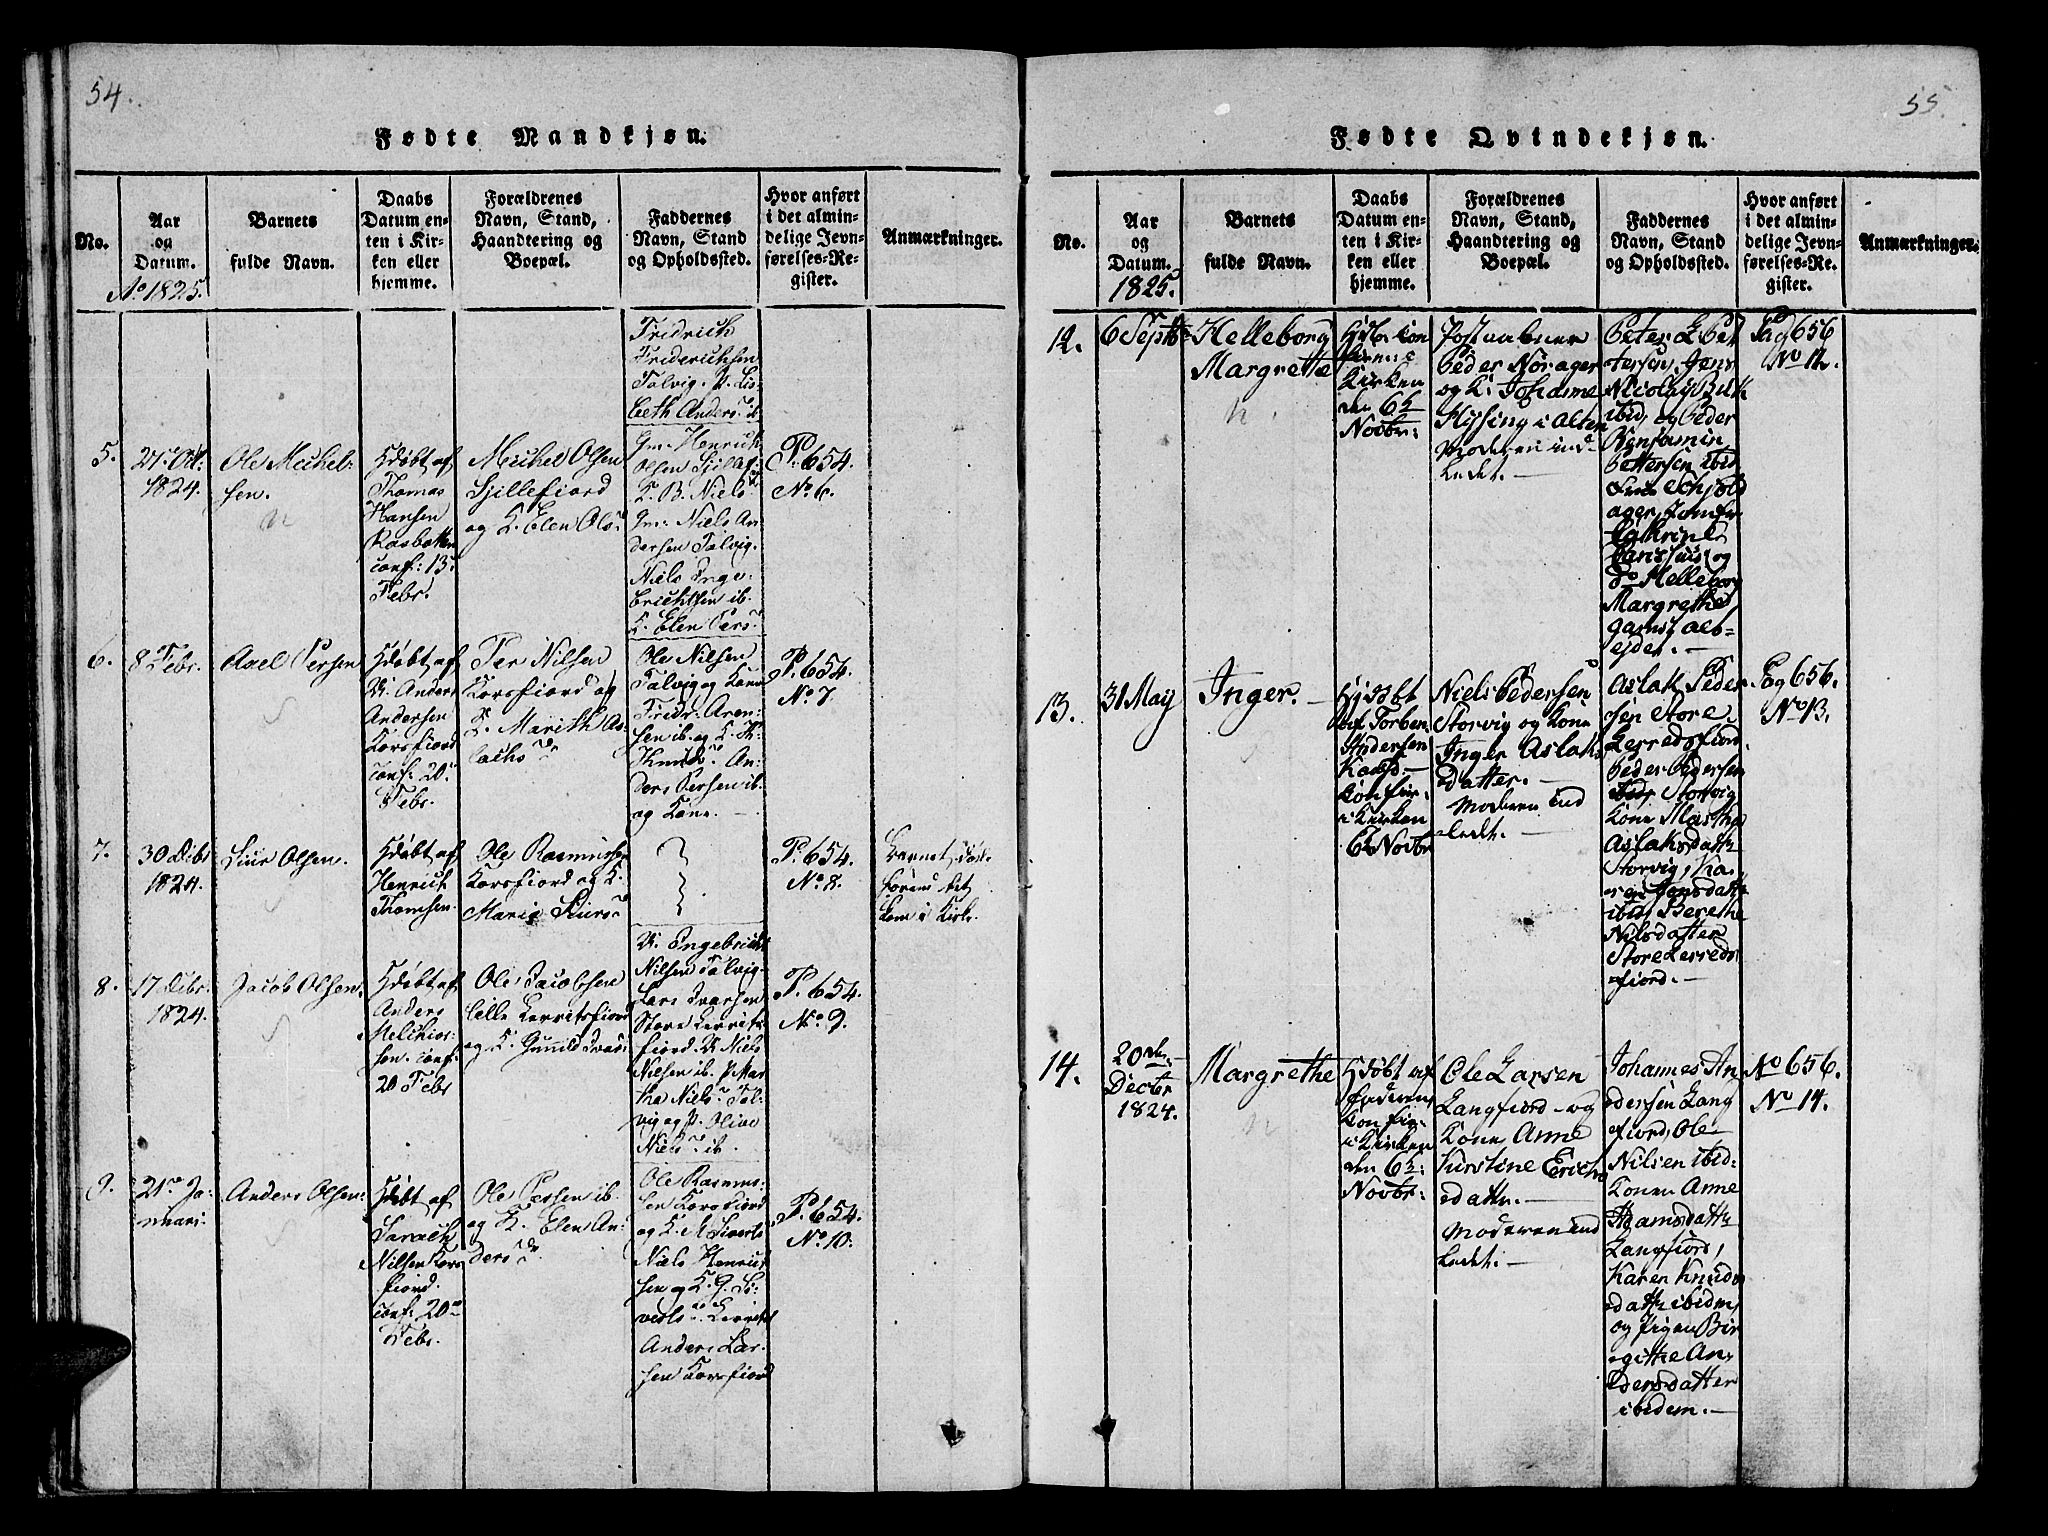 54.
Fødte Mandkjøn.
No.
Aar
og
Datum.
Ao 1825.
Barnets
fulde Navn.
Daabs
Datum en-
ten i Kir-
ken eller
hjemme.
Forældrenes
Navn, Stand,
Haandtering og
Boepæl.
Faddernes
Navn, Stand
og Opholdssted.
Hvor anført
i det almin-
delige Jevn-
førelses-Re-
gister.
Anmærkninger.
Fridrich
Friderichsen
Talvig. P. Lis-
beth Anders. ib
5.
27 Oct:
1824.
Ole Michel-
sen.
Hdøbt af
Thomas
Hansen
conf: 13
Febr.
Michel Olsen
og K. Elen Ols
Gm: Henrich
Olsen
K. B. Niels
Gm: Niels An
dersen Talvig.
Niels Inge-
Erichsen ib.
K. Elen Pers
P. 654.
No 6.
6.
8 Febr.
Axel Persen
Hdøbt af
Anders
Andersen
Korsfiord
conf: 20
Febr.
Per Nilsen
Korsfiord og
K. Marith As-
lachs
Ole Nilsen
Talvig og Kone
Fridr: Aren-
sen ib. og K.
An-
ders Persen ib.
og Kone.
P. 654.
No 7.
7.
30 Debr
1824.
Siur Olsen.
Hdøbt af
Henrich
Thomsen.
Ole Rasmussen
Korsfiord og K.
Maria Siurs
P. 654.
No 8.
Barnet døde
förend det
kom i Kirk.
8.
17 Debr.
1824.
Jacob Olsen.
Hdøbt af
Anders
Melchior-
sen. conf:
20 Febr
Ole Jacobsen
Lille Lerritsfiord
og K. Gunild Ivars
Engebricht
Nilsen Talvig.
Lars Ivarsen
Store Lerrits-
fiord. Niels
Nilsen ib. P. Mar
tha Niels Tal-
vig og P. Olive
Niels ib.
P. 654.
No 9.
9.
21 Ja-
nuari.
Anders Olsen.
Hdøbt af
Nilsen Kors
fiord.
conf: 20
Febr.
Ole Persen ib.
og K. Elen An-
ders
Ole Rasmus-
sen Korsfiord
og K. M Siverts
Niels Henrich
sen og K. G. Si-
verts
Anders Lar-
sen Korsfiord
P. 654.
No 10.
55.
Fødte Qvindekjøn.
No.
Aar
og
Datum.
1825.
Barnets
fulde Navn.
Daabs
Datum en-
ten i Kir-
ken eller
hjemme.
Forældrenes
Navn, Stand,
Haandtering og
Boepæl.
Faddernes
Navn, Stand
og Opholdssted.
Hvor anført
i det almin-
delige Jevn-
førelses-Re-
gister.
Anmærkninger.
12.
6 Septb
Helleborg
Margrethe
Kirken
den 6
Novbr:
Postaabner
Peder Norager
og K. Johanne
Flysing i Alten
Moderen ind
ledet.
Peter L Pet
tersen, Jens
Nicolay Buk
ibid, og Peder
Benjamin
Pettersen ibid
ager, Jomfr
Cathrine
og
Do Helleborg
Margrethe
Gamst aes-
ejdet.
Pag 656
No 12.
13.
31 May
Inger.
Hjdøbt
af Torben
Andersen
Konfir-
i Kirken
6 Novbr
Niels Pedersen
Storvig og Kone
Inger Aslaks
Datter.
Moderen ind
ledt.
Aslak Peder-
sen Store
Lerredsfiord
Peder Pedersen
Storvig
Kone Martha
Aslaksdatt
Storvig, Ka-
ren Jensdatt
ibid, Berethe
Nilsdatter
Store Lerreds
fiord.
Pag 656.
No 13.
14.
20de
Decbr
1824.
Margrethe
Hjdøbt af
Faderen,
Konfir-
i Kirken
den 6
Novbr:
Ole Larsen
Langfiord og
Kone Anne
Kirstine Erichs
datt.
Moderen ind
ledet.
Johannes An
dersen Lang
fiord, Ole
Nilsen ibid
Konen Anne
datt
Langfiord,
Karen Knuds
datt ibidm,
og Pigen Bir
gitthe An-
dersdatter
ibidem.
No 656.
No 14.